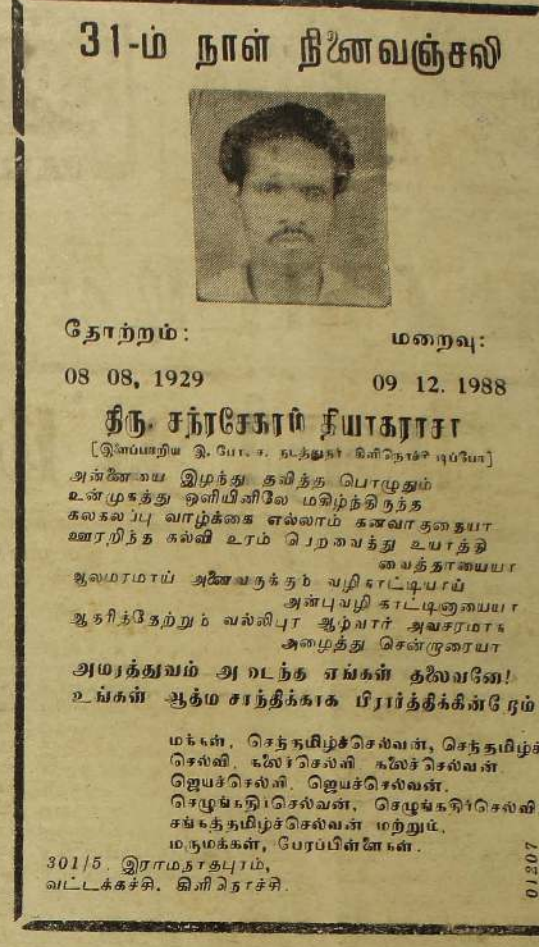 31-ம் நாள் நினைவஞ்சலி
தோற்றம்: மறைவு:
08 08, 1929 09 12. 1988
திரு. சந்ரசேகரம் தியாகராசா
[இளைப்பாறிய இ. போ. ச. நடத்துநர் கிளிநொச்சி டிப்போ]
அன்னையை இழந்து தவித்த பொழுதும்
உன்முகத்து ஒளியினிலே மகிழ்ந்திருந்த
கலகலப்பு வாழ்க்கை எல்லாம் கனவாகதையா
ஊரறிந்த கல்வி உரம் பெறவைத்து உயர்த்தி
வைத்தாயையா
ஆலமரமாய் அனைவருக்கும் வழிகாட்டியாய்
அன்புவழி காட்டினாயையா
ஆதரித்தேற்றும் வல்லிபுர ஆழ்வார் அவசரமாக
அழைத்து சென்றாரையா
அமரத்துவம் அடைந்த எங்கள் தலைவனே!
உங்கள் ஆத்ம சாந்திக்காக பிரார்த்திக்கின்றேம்
மக்கள், செந்தமிழ்ச்செல்வன், செந்தமிழ்ச்
செல்வி, கலைச்செல்வி, கலைச்செல்வன்
ஜெயச்செல்வி, ஜெயச்செல்வன்,
செழுங்கதிர்செல்வன், செழுங்கதிர்செல்வி
சங்கத்தமிழ்ச்செல்வன் மற்றும்,
மருமக்கள், பேரப்பிள்ளைகள்.
301/5. இராமநாதபுரம்,
வட்டக்கச்சி. கிளிநொச்சி.
01207